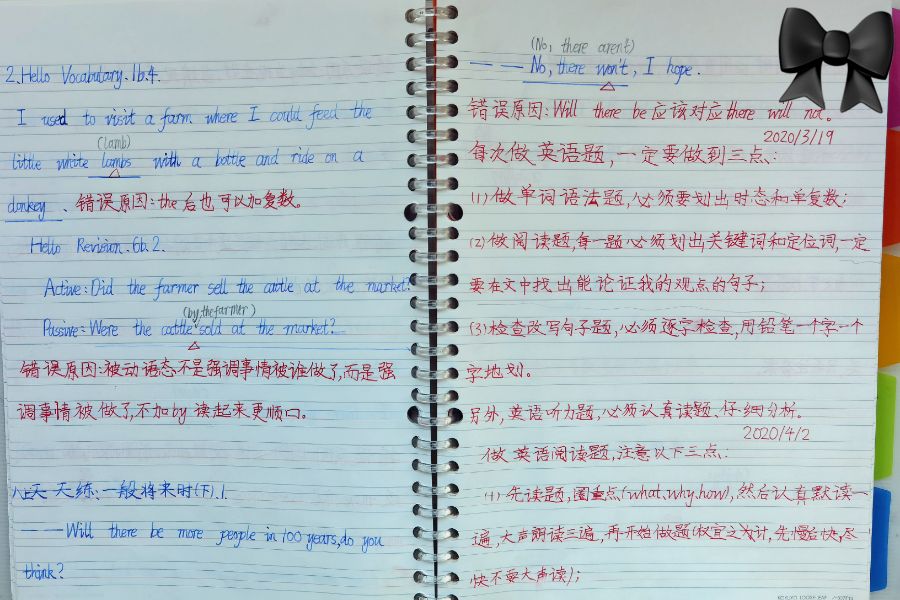 2.Hello Vocabulary.1b.4.
I used to visit a farm where I could feed the
(lamb)
little white lambs with a bottle and ride on a
donkey、错误原因:the后也可以加复数。
Hello Revision.6b.2.
Active:Did the farmer sell the cattle at the market?
(by the farmer)
Passive:Were the cattle sold at the market?
错误原因:被动语态不是强调事情被谁做了,而是强
调事情被做了,不加by读起来更顺口。
天天练:一般将来时(下).1.
——Will there be more people in 100 years,do you
think?
(No, there aren't)
——No, there won't, I hope.
错误原因:Will there be应该对应there will not。
2020/3/19
每次做英语题,一定要做到三点:
(1)做单词语法题,必须要划出时态和单复数;
(2)做阅读题,每一题必须划出关键词和定位词,一定
要在文中找出能论证我的观点的句子;
(3)检查改写句子题,必须逐字检查,用铅笔一个字一个
字地划。
另外,英语听力题,必须认真读题、仔细分析。
2020/4/2
做英语阅读题,注意以下三点:
(1)先读题,圈重点(what,why,how),然后认真默读一
遍,大声朗读三遍,再开始做题(权宜之计,先慢后快,尽
快不要大声读);